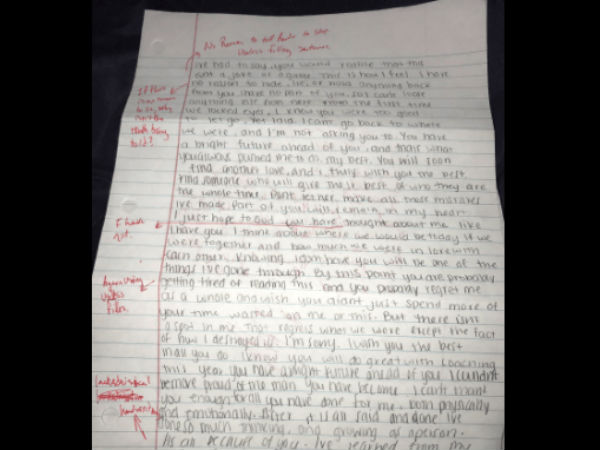 No Reason to
Useless filler sentence
I've had to say, you would realize that this
isnt a joke or a game. This is how I feel. I have
no reason to hide, lie, or hold anything back
from you. I have no part of you, so I
anything else from here. From the first time
we locked eyes, I knew you were too good
to let go. Yet I did. I cant go back to where
we were, and I'm not asking you to. You have
a bright future ahead of you, and thats what
you always pushed me to do, my best. You will soon
find another love, and I truly wish you the best.
Find someone who will give the best of who they are
the whole time. Dont let her make all those mistakes
I've made. Part of you will remain in my heart.
I just hope to God you have thought about me like
I have you. I think about where we would be today if we
were together and how much we were in love with
each other. Knowing I dont have you will be one of the
things I've gone through. By this point you are probably
getting tired of reading this and you probably regret me
as a whole and wish you didnt just spend more of
your time wasted on me or this. But there isnt
a spot in me that regrets what we were except the fact
of how I destroyed it. I'm sorry. I wish you the best
in all you do. I know you will do great with coaching
this year. You have a bright future ahead of you. I couldn't
be more proud of the man you have become. I cant thank
you enough for all you have done for me, both physically
and emotionally. After it is all said and done I've
done so much thinking, and growing as a person.
Its all because of you. I've learned from my
If
no reason
to lie, why
isn't the
truth being
told?
I have
not.
Agonizing
useless
filler
handwriting